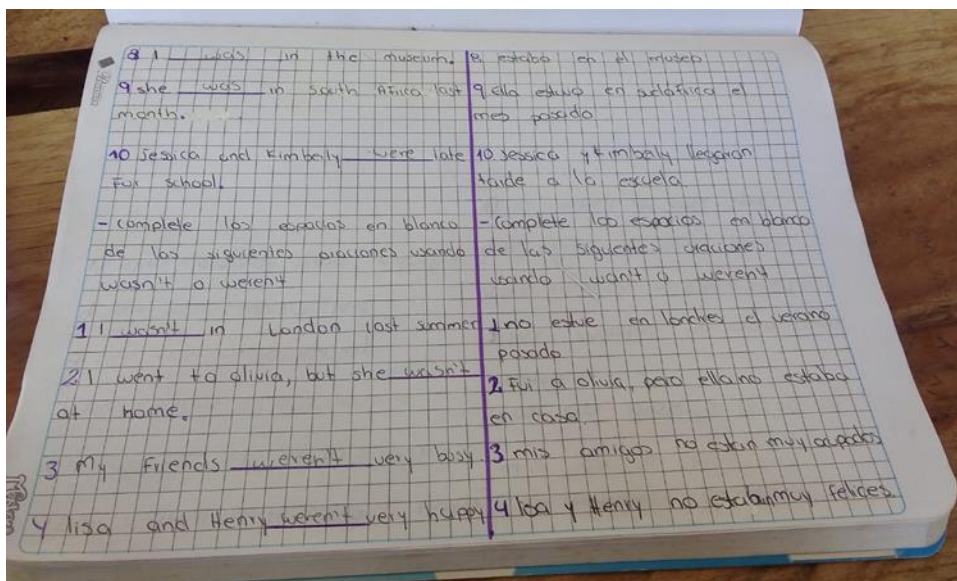 8 I was in the museum.
9 she was in south Africa last
month.
10 Jessica and kimbelly were late
For school.
- complete los espacios en blanco
de las siguientes oraciones usando
wasn't o weren't
1 I wasn't in London last summer
2. I went to olivia, but she wasn't
at home.
3 My Friends weren't very busy
4 lisa and Henry weren't very happy
8 estaba en el museo
9 ella estuvo en el
mes pasado
10 Jessica y kimbelly llegaron
tarde a la escuela
- Complete los espacios en blanco
de las siguientes oraciones
usando wan't o weren't
1 no estuve en londres el verano
pasado
2 Fui a olivia, pero ella no estaba
en casa
3 mis amigos no estan muy ocupados
4 lisa y Henry no estaban muy felices